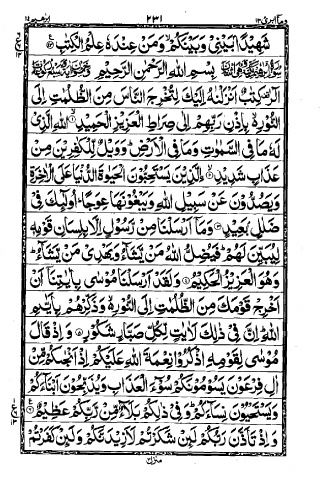 وما ابرئ ١٣ ٢٣١ ابرٰهيم ١٤
شَهِيْدًۢا بَيْنِيْ وَبَيْنَكُمْ وَمَنْ عِنْدَهٗ عِلْمُ الْكِتٰبِ
بِسْمِ اللهِ الرَّحْمٰنِ الرَّحِيْمِ
الٓرٰ كِتٰبٌ اَنْزَلْنٰهُ اِلَيْكَ لِتُخْرِجَ النَّاسَ مِنَ الظُّلُمٰتِ اِلَى
النُّوْرِ بِاِذْنِ رَبِّهِمْ اِلٰى صِرَاطِ الْعَزِيْزِ الْحَمِيْدِ اللهِ الَّذِيْ
لَهٗ مَا فِي السَّمٰوٰتِ وَمَا فِي الْاَرْضِ وَوَيْلٌ لِّلْكٰفِرِيْنَ مِنْ
عَذَابٍ شَدِيْدِ الَّذِيْنَ يَسْتَحِبُّوْنَ الْحَيٰوةَ الدُّنْيَا عَلَى الْاٰخِرَةِ
وَيَصُدُّوْنَ عَنْ سَبِيْلِ اللهِ وَيَبْغُوْنَهَا عِوَجًا اُولٰٓئِكَ فِيْ
ضَلٰلٍۢ بَعِيْدٍ وَمَآ اَرْسَلْنَا مِنْ رَّسُوْلٍ اِلَّا بِلِسَانِ قَوْمِهٖ
لِيُبَيِّنَ لَهُمْ فَيُضِلُّ اللهُ مَنْ يَّشَآءُ وَيَهْدِيْ مَنْ يَّشَآءُ
وَهُوَ الْعَزِيْزُ الْحَكِيْمُ وَلَقَدْ اَرْسَلْنَا مُوْسٰى بِاٰيٰتِنَآ اَنْ
اَخْرِجْ قَوْمَكَ مِنَ الظُّلُمٰتِ اِلَى النُّوْرِ وَذَكِّرْهُمْ بِاَيّٰىمِ
اللهِ اِنَّ فِيْ ذٰلِكَ لَاٰيٰتٍ لِّكُلِّ صَبَّارٍ شَكُوْرٍ وَاِذْ قَالَ
مُوْسٰى لِقَوْمِهِ اذْكُرُوْا نِعْمَةَ اللهِ عَلَيْكُمْ اِذْ اَنْجٰىكُمْ مِّنْ
اٰلِ فِرْعَوْنَ يَسُوْمُوْنَكُمْ سُوْٓءَ الْعَذَابِ وَيُذَبِّحُوْنَ اَبْنَآءَكُمْ
وَيَسْتَحْيُوْنَ نِسَآءَكُمْ وَفِيْ ذٰلِكُمْ بَلَآءٌ مِّنْ رَّبِّكُمْ عَظِيْمٌ
وَاِذْ تَاَذَّنَ رَبُّكُمْ لَئِنْ شَكَرْتُمْ لَاَزِيْدَنَّكُمْ وَلَئِنْ كَفَرْتُمْ
منزل